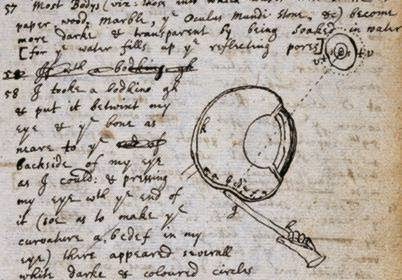 57 Most Bodys (viz: those into which water
paper, wood, Marble, yᵉ Oculus Mundi Stone, &c) become
more darke & transparent by being soaked in water
[for yᵉ water fills up yᵉ reflecting pores]
58 I tooke a bodkine gh
& put it betwixt my
eye & yᵉ bone as
neare to yᵉ
backside of my eye
as I could: & pressing
my eye wth yᵉ end of
it (soe as to make yᵉ
curvature a, bcdef in my
eye) there appeared severall
white darke & coloured circles
h
g